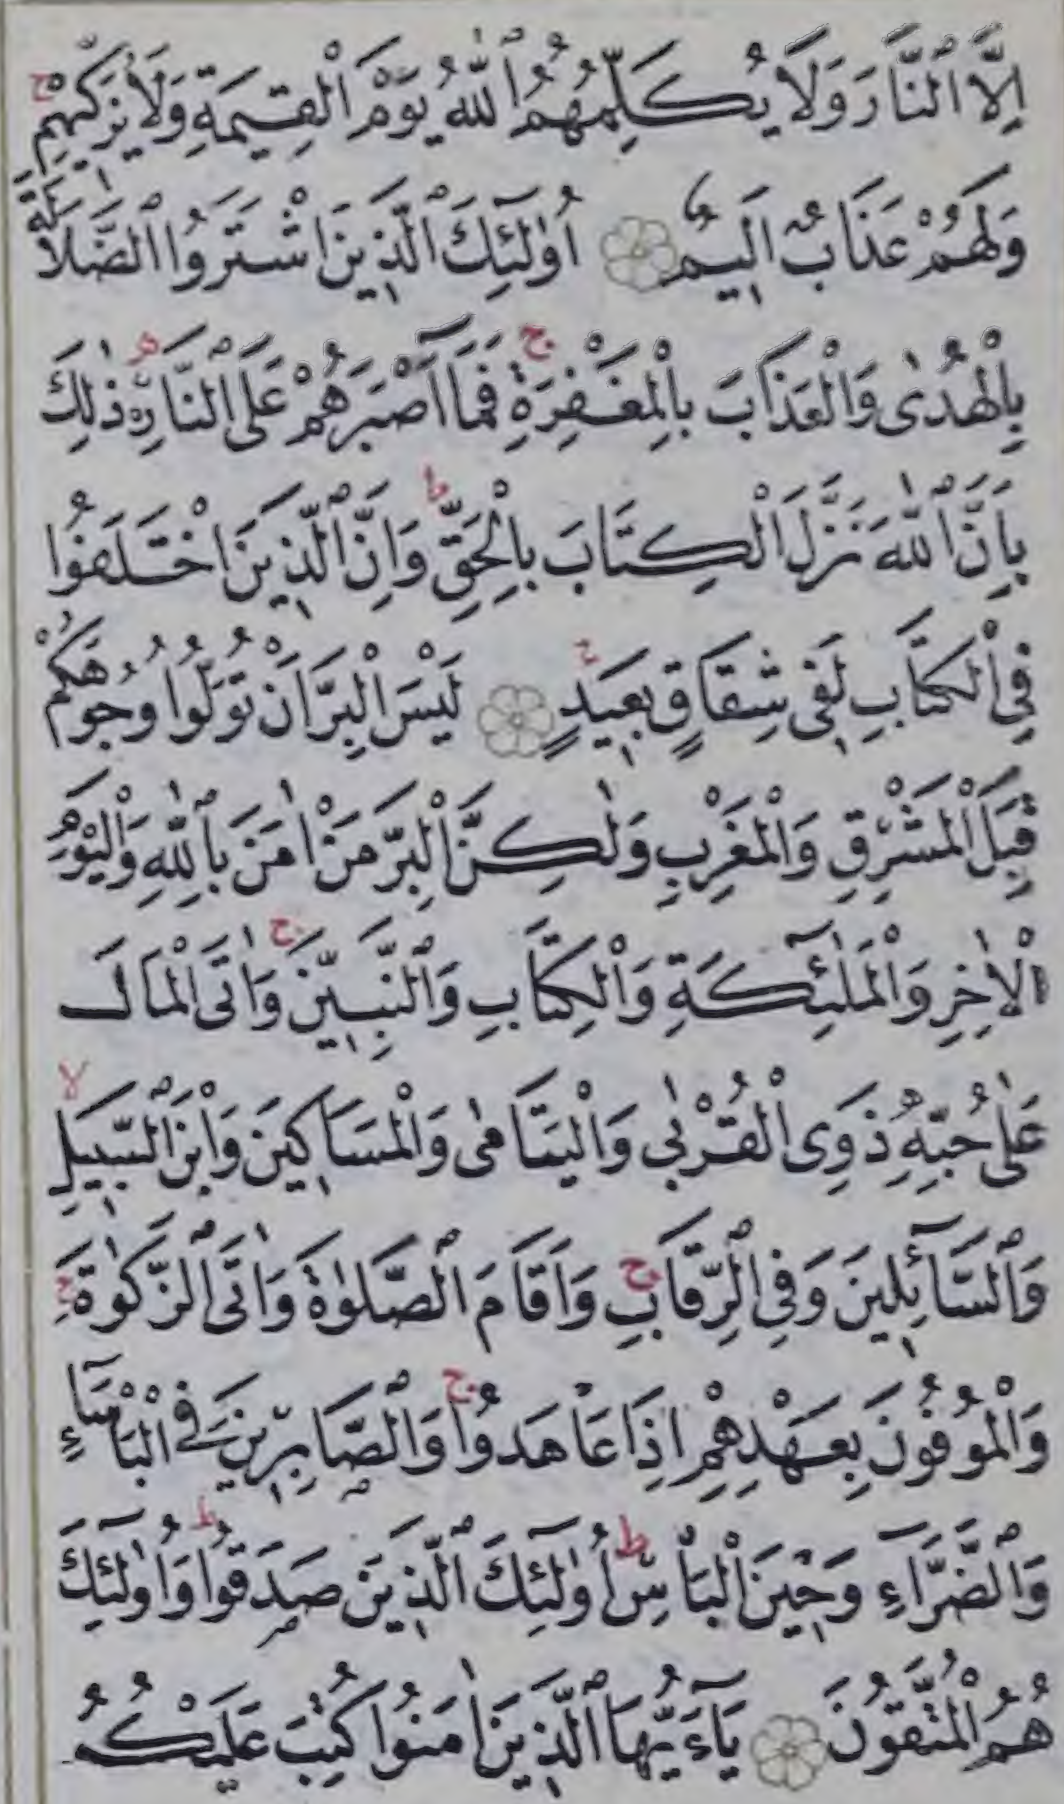 اِلَّا النَّارَ وَلَا يُكَلِّمُهُمُ اللّٰهُ يَوْمَ الْقِيٰمَةِ وَلَا يُزَكّٖيهِمْ ج
وَلَهُمْ عَذَابٌ اَلٖيمٌ ۝ اُو۬لٰٓئِكَ الَّذٖينَ اشْتَرَوُا الضَّلَالَةَ
بِالْهُدٰى وَالْعَذَابَ بِالْمَغْفِرَةِ ج فَمَٓا اَصْبَرَهُمْ عَلَى النَّارِ ه ذٰلِكَ
بِاَنَّ اللّٰهَ نَزَّلَ الْكِتَابَ بِالْحَقِّ ط وَاِنَّ الَّذٖينَ اخْتَلَفُوا
فِى الْكِتَابِ لَفٖى شِقَاقٍ بَعٖيدٍ ع ۝ لَيْسَ الْبِرَّ اَنْ تُوَلُّوا وُجُوهَكُمْ
قِبَلَ الْمَشْرِقِ وَالْمَغْرِبِ وَلٰكِنَّ الْبِرَّ مَنْ اٰمَنَ بِاللّٰهِ وَالْيَوْمِ
الْاٰخِرِ وَالْمَلٰٓئِكَةِ وَالْكِتَابِ وَالنَّبِيّٖنَ ج وَاٰتَى الْمَالَ
عَلٰى حُبِّهٖ ذَوِى الْقُرْبٰى وَالْيَتَامٰى وَالْمَسَاكٖينَ وَابْنَ السَّبٖيلِ لا
وَالسَّٓائِلٖينَ وَفِى الرِّقَابِ ج وَاَقَامَ الصَّلٰوةَ وَاٰتَى الزَّكٰوةَ ج
وَالْمُوفُونَ بِعَهْدِهِمْ اِذَا عَاهَدُوا ج وَالصَّابِرٖينَ فِى الْبَأْسَٓاءِ
وَالضَّرَّٓاءِ وَحٖينَ الْبَأْسِ ط اُو۬لٰٓئِكَ الَّذٖينَ صَدَقُوا ط وَاُو۬لٰٓئِكَ
هُمُ الْمُتَّقُونَ ۝ يَٓا اَيُّهَا الَّذٖينَ اٰمَنُوا كُتِبَ عَلَيْكُمُ